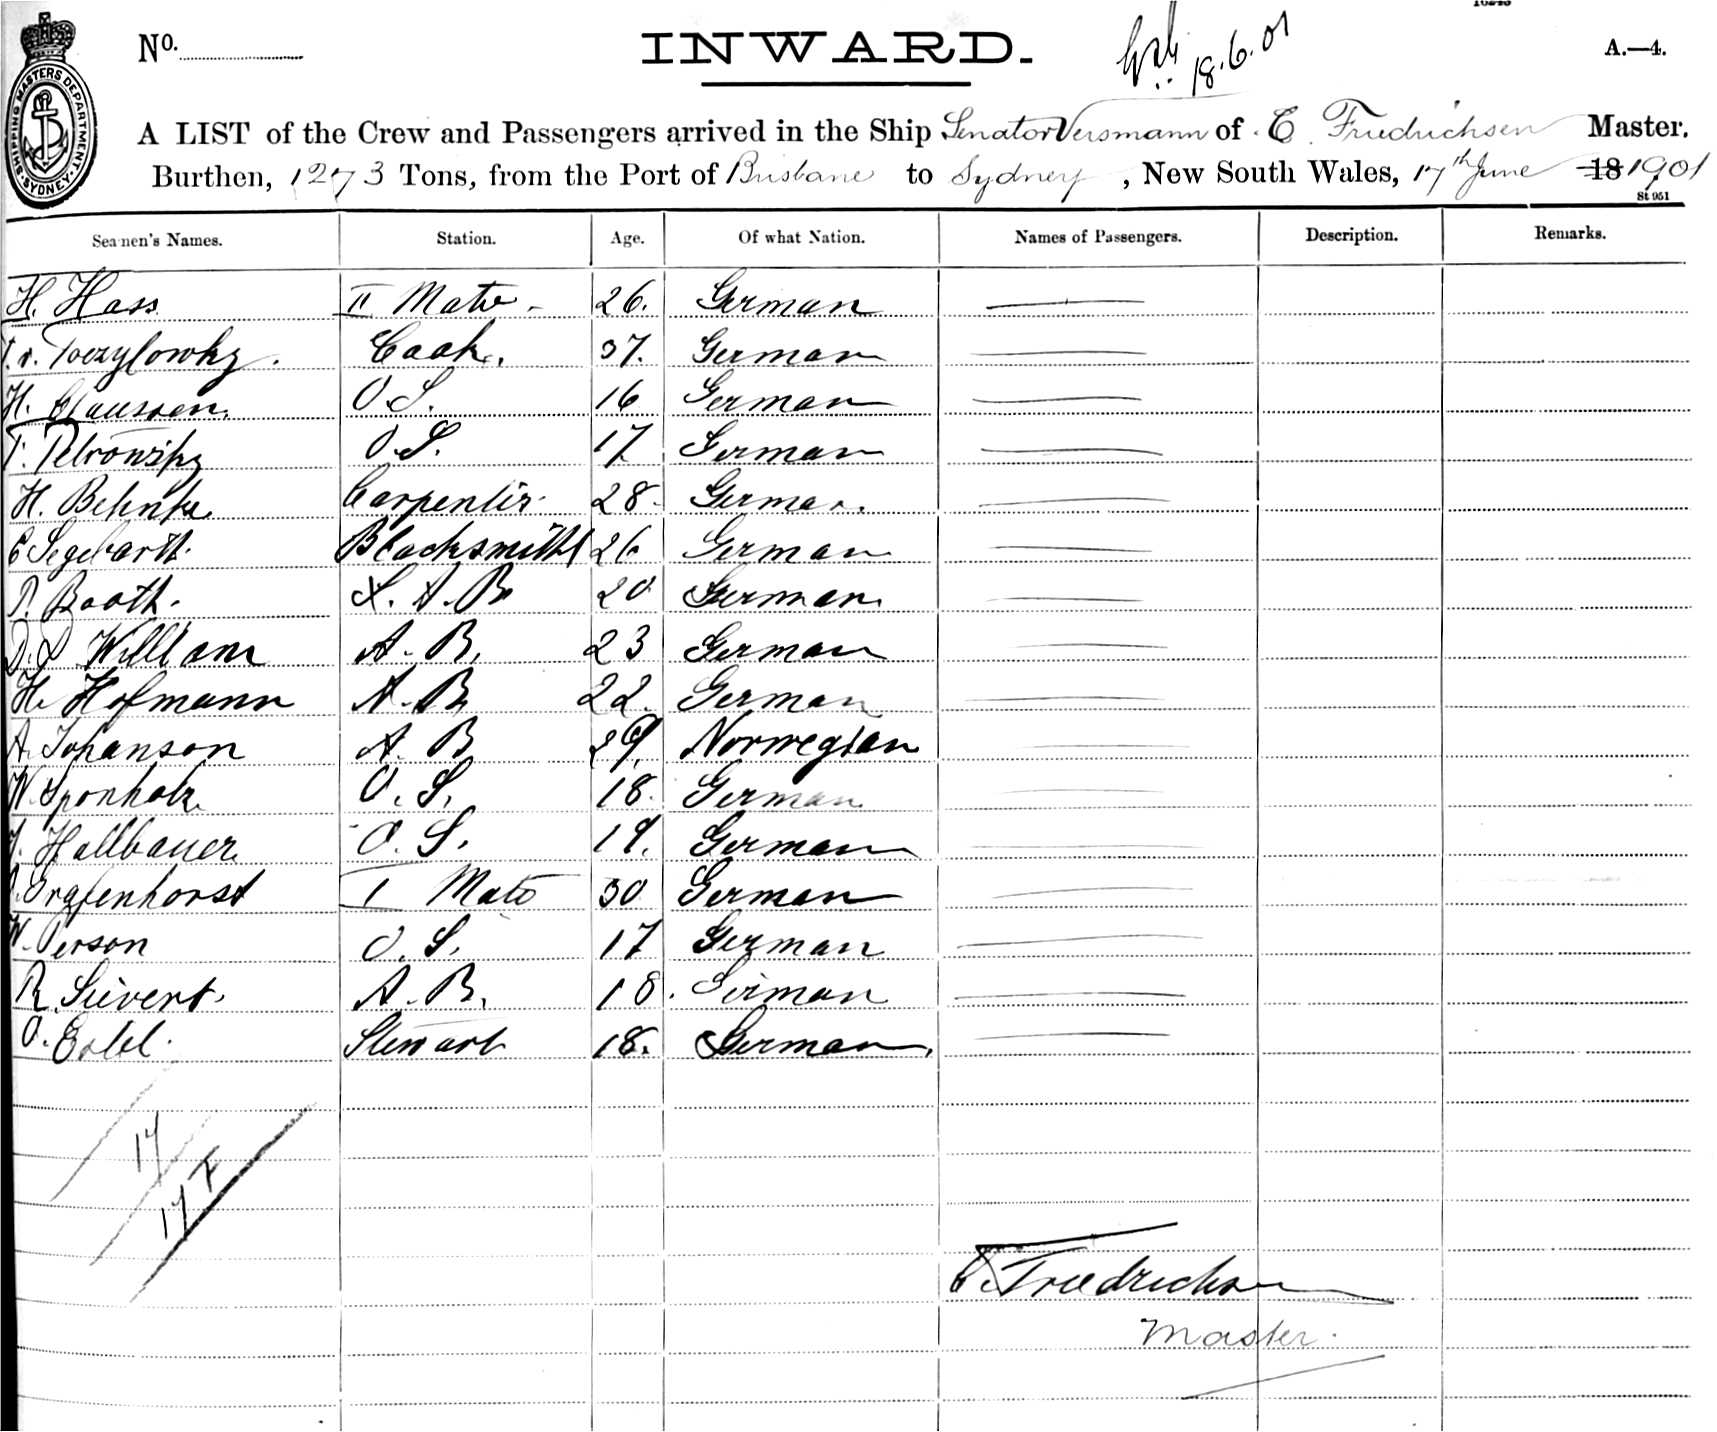 No.
INWARD.
18.6.01
A.—4.
SHIPPING MASTERS DEPARTMENT. SYDNEY.
A LIST of the Crew and Passengers arrived in the Ship Senator Versmann of C Friedrichsen Master.
Burthen, 1273 Tons, from the Port of Brisbane to Sydney, New South Wales, 17th June 18 1901
St 951
Seamen's Names. Station. Age. Of what Nation. Names of Passengers. Description. Remarks.
H. Hass II Mate 26. German
Cook. 37. German
H. Claussen. O.S. 16 German
Petrowsky O.S. 17 German
H. Behnke Carpenter 28. German
C Segebarth. Blacksmith 26 German
P. Booth. S.A.B 20 German
William A.B. 23 German
H. Hofmann A.B 22. German
A. Johanson A.B 29. Norwegian
W. Sponholz O.S. 18. German
Hallbauer. O.S. 19. German
Grafenhorst I Mate 30 German
W. Person O.S. 17 German
R. Sievert. A.B. 18. German
O. Stewart 18. German.
17
17 F
C. Friedrichsen
Master.